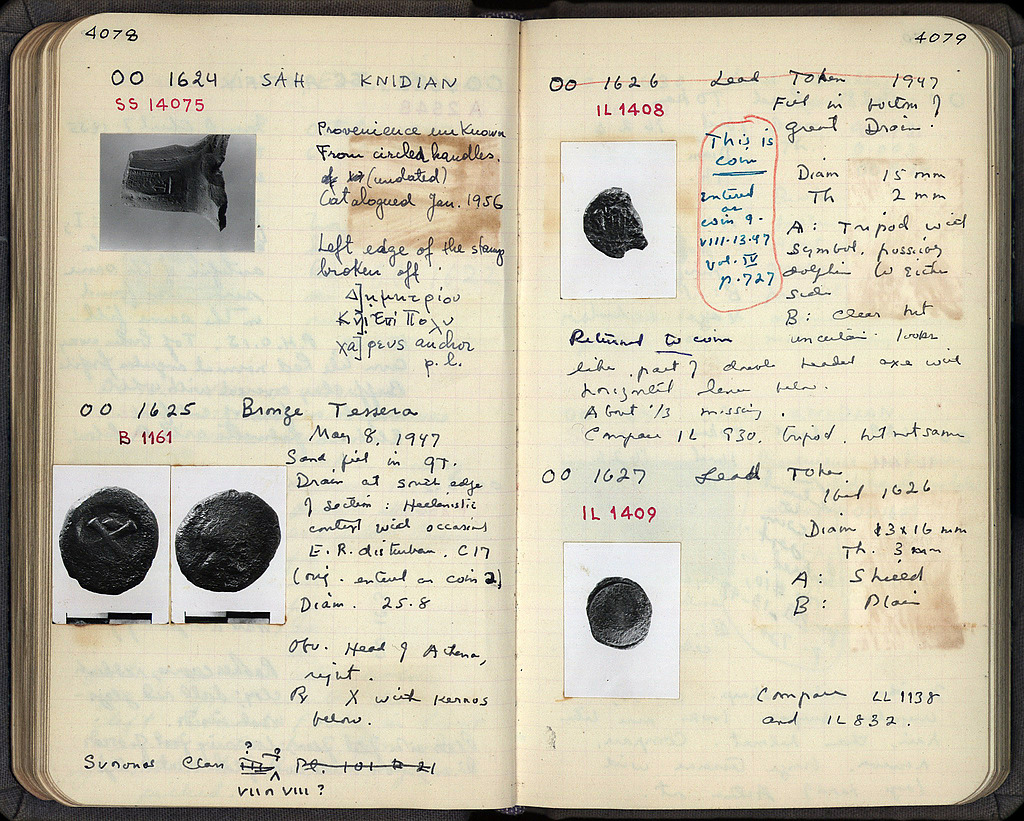 4078
OO 1624 SAH KNIDIAN
SS 14075
Provenience unknown
From circled handles.
(undated)
Catalogued Jan. 1956
Left edge of the stamp
broken off.
Δ]ημητρίου
Κν]ι Επί Πολυ
χά]ρευς anchor
p.l.
OO 1625 Bronze Tessera
B 1161
May 8, 1947
Sand fill in GT.
Drain at south edge
of section: Hellenistic
context with occasional
E.R. disturban. C17
(orig. entered as coin 2)
Diam. 25.8
Obv. Head of Athena,
right.
R X with kernos
below.
Svoronos Class III Pl. 101 21
? ?
VII or VIII?
4079
OO 1626 Lead Token 1947
IL 1408
Fill in bottom of
Great Drain.
This is
coin
entered
as
coin 9.
VIII-13-47
vol. IV
p. 727
Diam 15 mm
Th 2 mm
A: Tripod with
symbol, possibly
dolphin to either
side
B: Clear but
uncertain looks
Returned to coin
like part of double headed axe with
horizontal below.
About 1/3 missing.
Compare IL 930, tripod, but not same
OO 1627 Lead Token
IL 1409
Ibid 1626
Diam 13 x 16 mm
Th. 3 mm
A: Shield
B: Plain
Compare IL 1138
and IL 832.